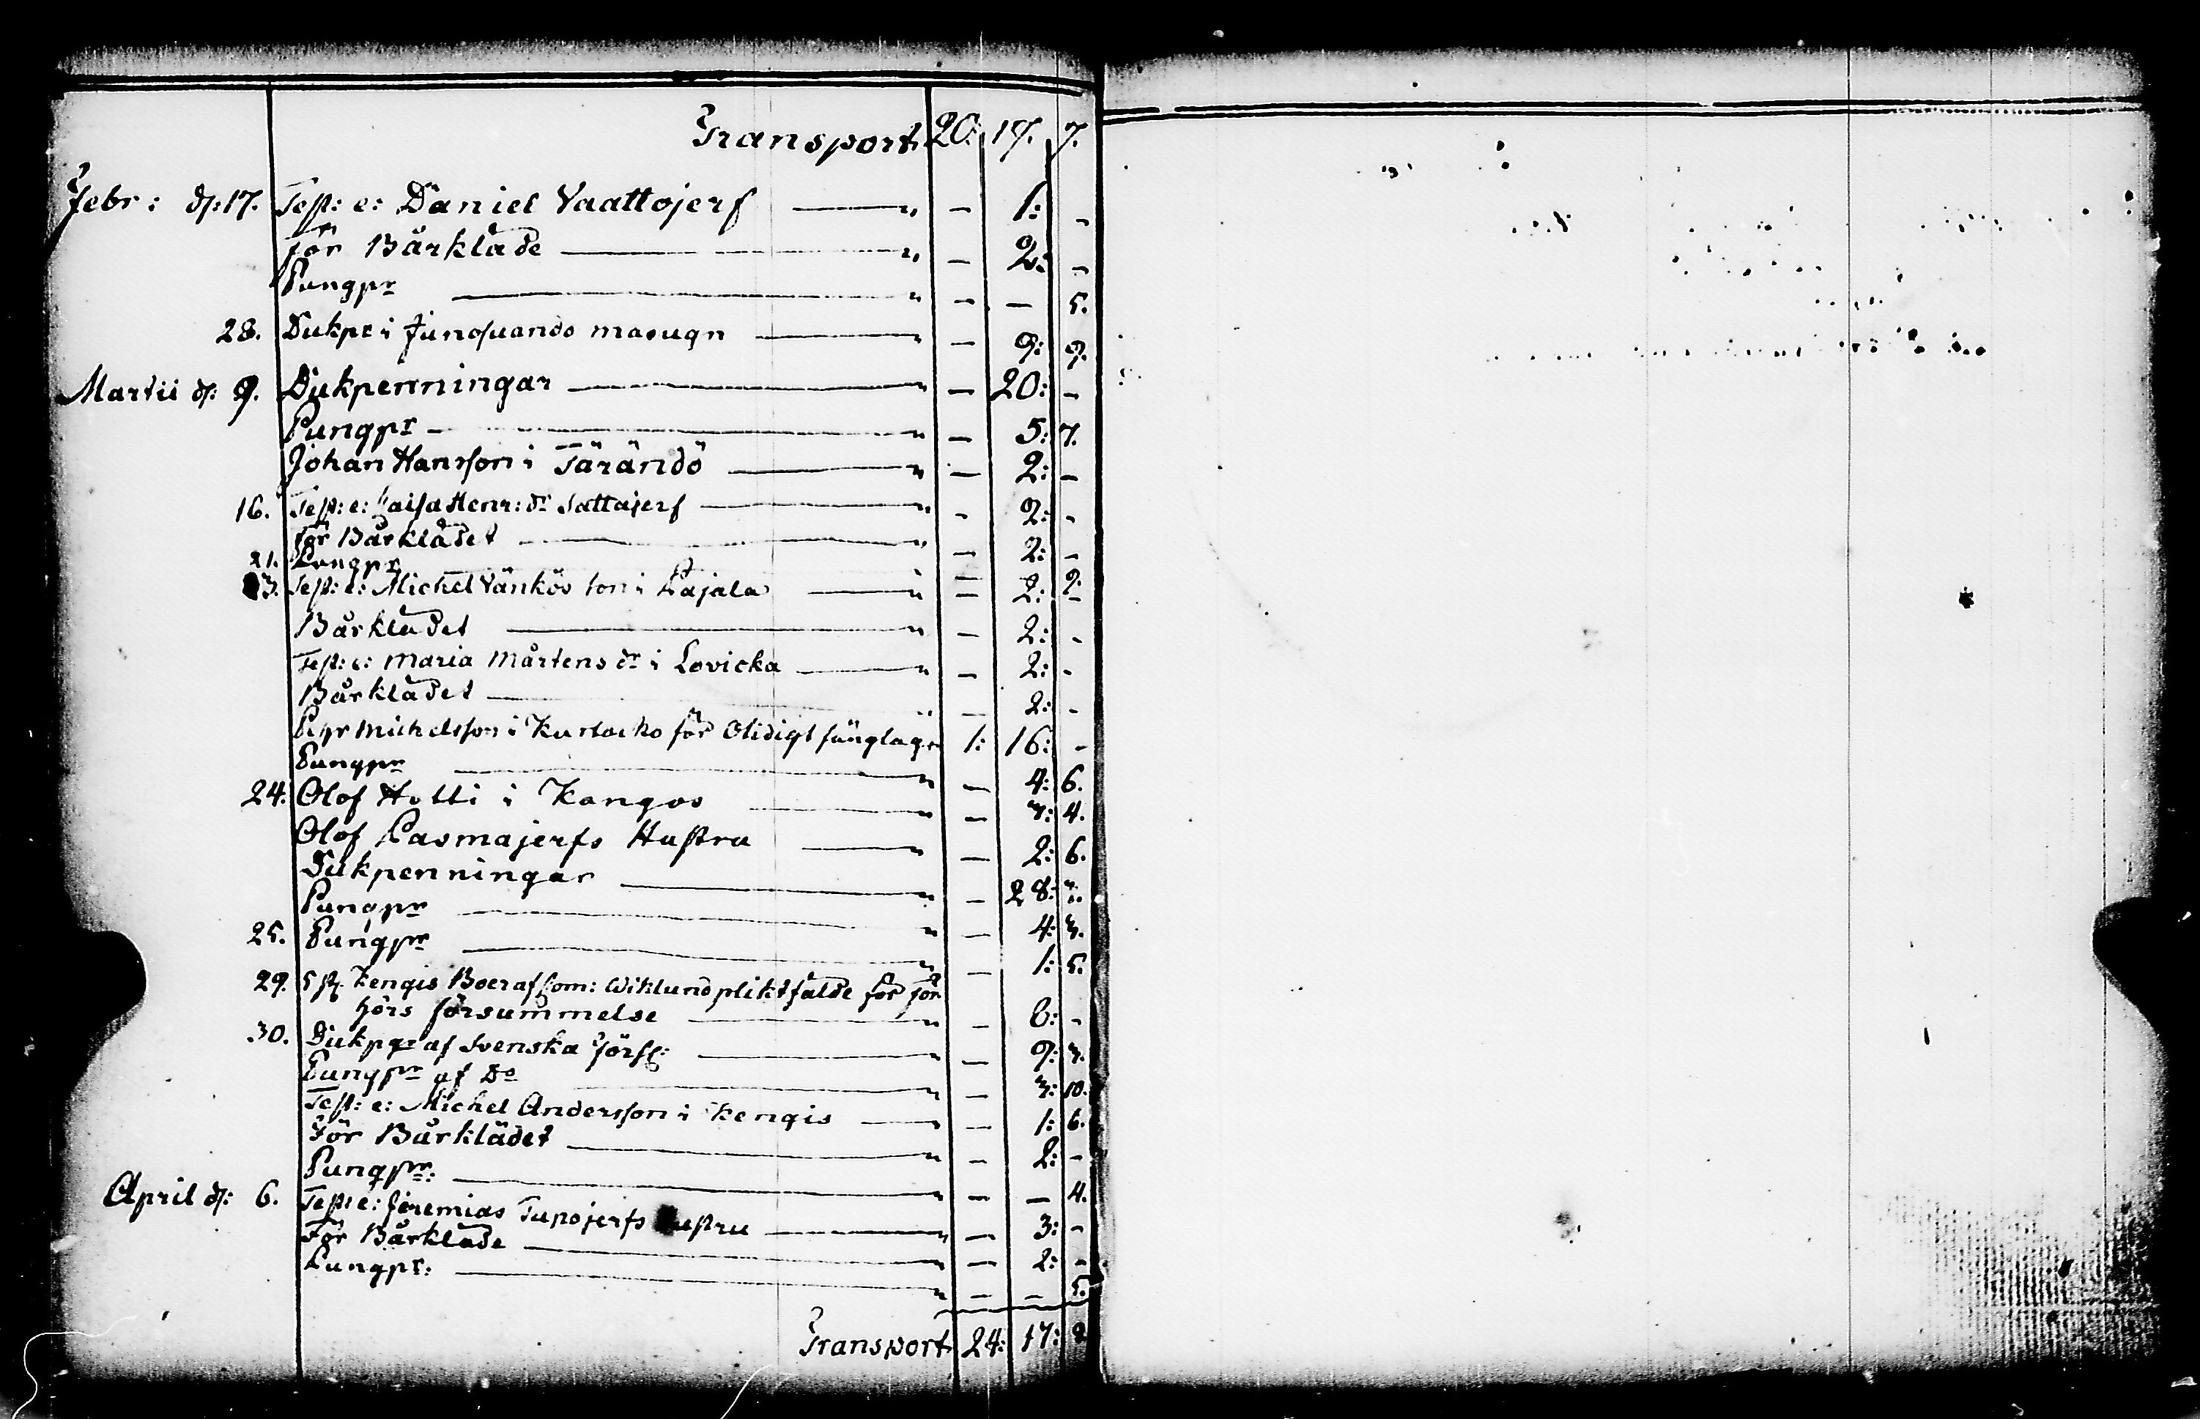 Transport. 20: 17. 7.
Febr: d: 17. Test: e: Daniel Vaattojerf — " — 1: -
för Bårkläde — " — 2: -
Pungpr — " — — 5.
28. Dukpr i Junosuando masugn — — 9: 9.
Martii d: 9. Dukpenningar — " — 20: -
Pungpr — " — 5: 7.
Johan Hansson i Tärändö — " — 2: -
16. Test: e: Caisa Henr: dr Sattajerf — " - 2: -
för Bårklädet — " — 2: -
21. Pungpr — 2.
23. Test: e: Michel Vänkös son i Pajala — " — 2: -
Bårklädet — " — 2: -
Test: e: Maria Mårtens dr i Lovicka — " — 2: -
Bårklädet — " — 2: -
Michelsson i för Olidigt 1: 16: -
Pungpr — " — 4: 6.
24. Olof Hotti i Kangos — " — 7: 4.
Olof Pasmajerfs Hustru — " — 2: 6.
Dukpenningar — " — 28:
Pungpr — " — 4: 3.
25. Pungpr — " — 1: 5.
29. 5 st. Kengis Boer af Com: Wiklund pliktfälde för för
hörs försummelse — " — 6: -
30. Dukpgr af Svenska Förs: — " — 9: 3.
Pungpr af Do — " — 3: 10.
Test: e: Michel Andersson i Kengis — " — 1: 6.
För Bårklädet — " — 2: -
Pungpr: — " — — 4.
April d: 6. Test: e: Jeremias Tupojerfs Hustru — " — 3: -
För Bårkläde — " — 2: -
Pungpr: — " — — 5.
Transport. 24: 17: 8.